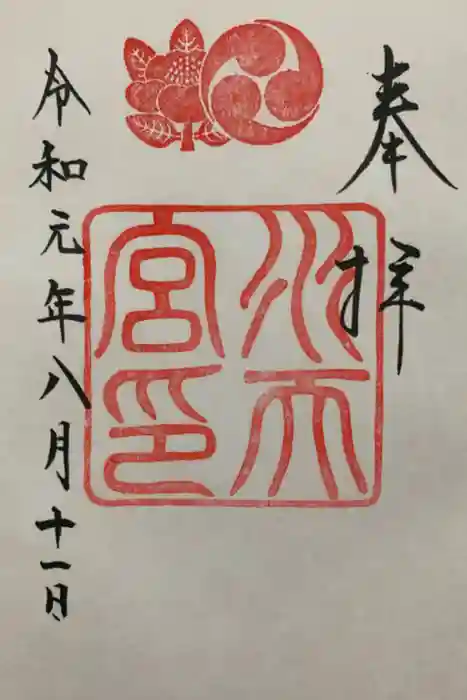 奉拝
水天宮印
令和元年八月十一日